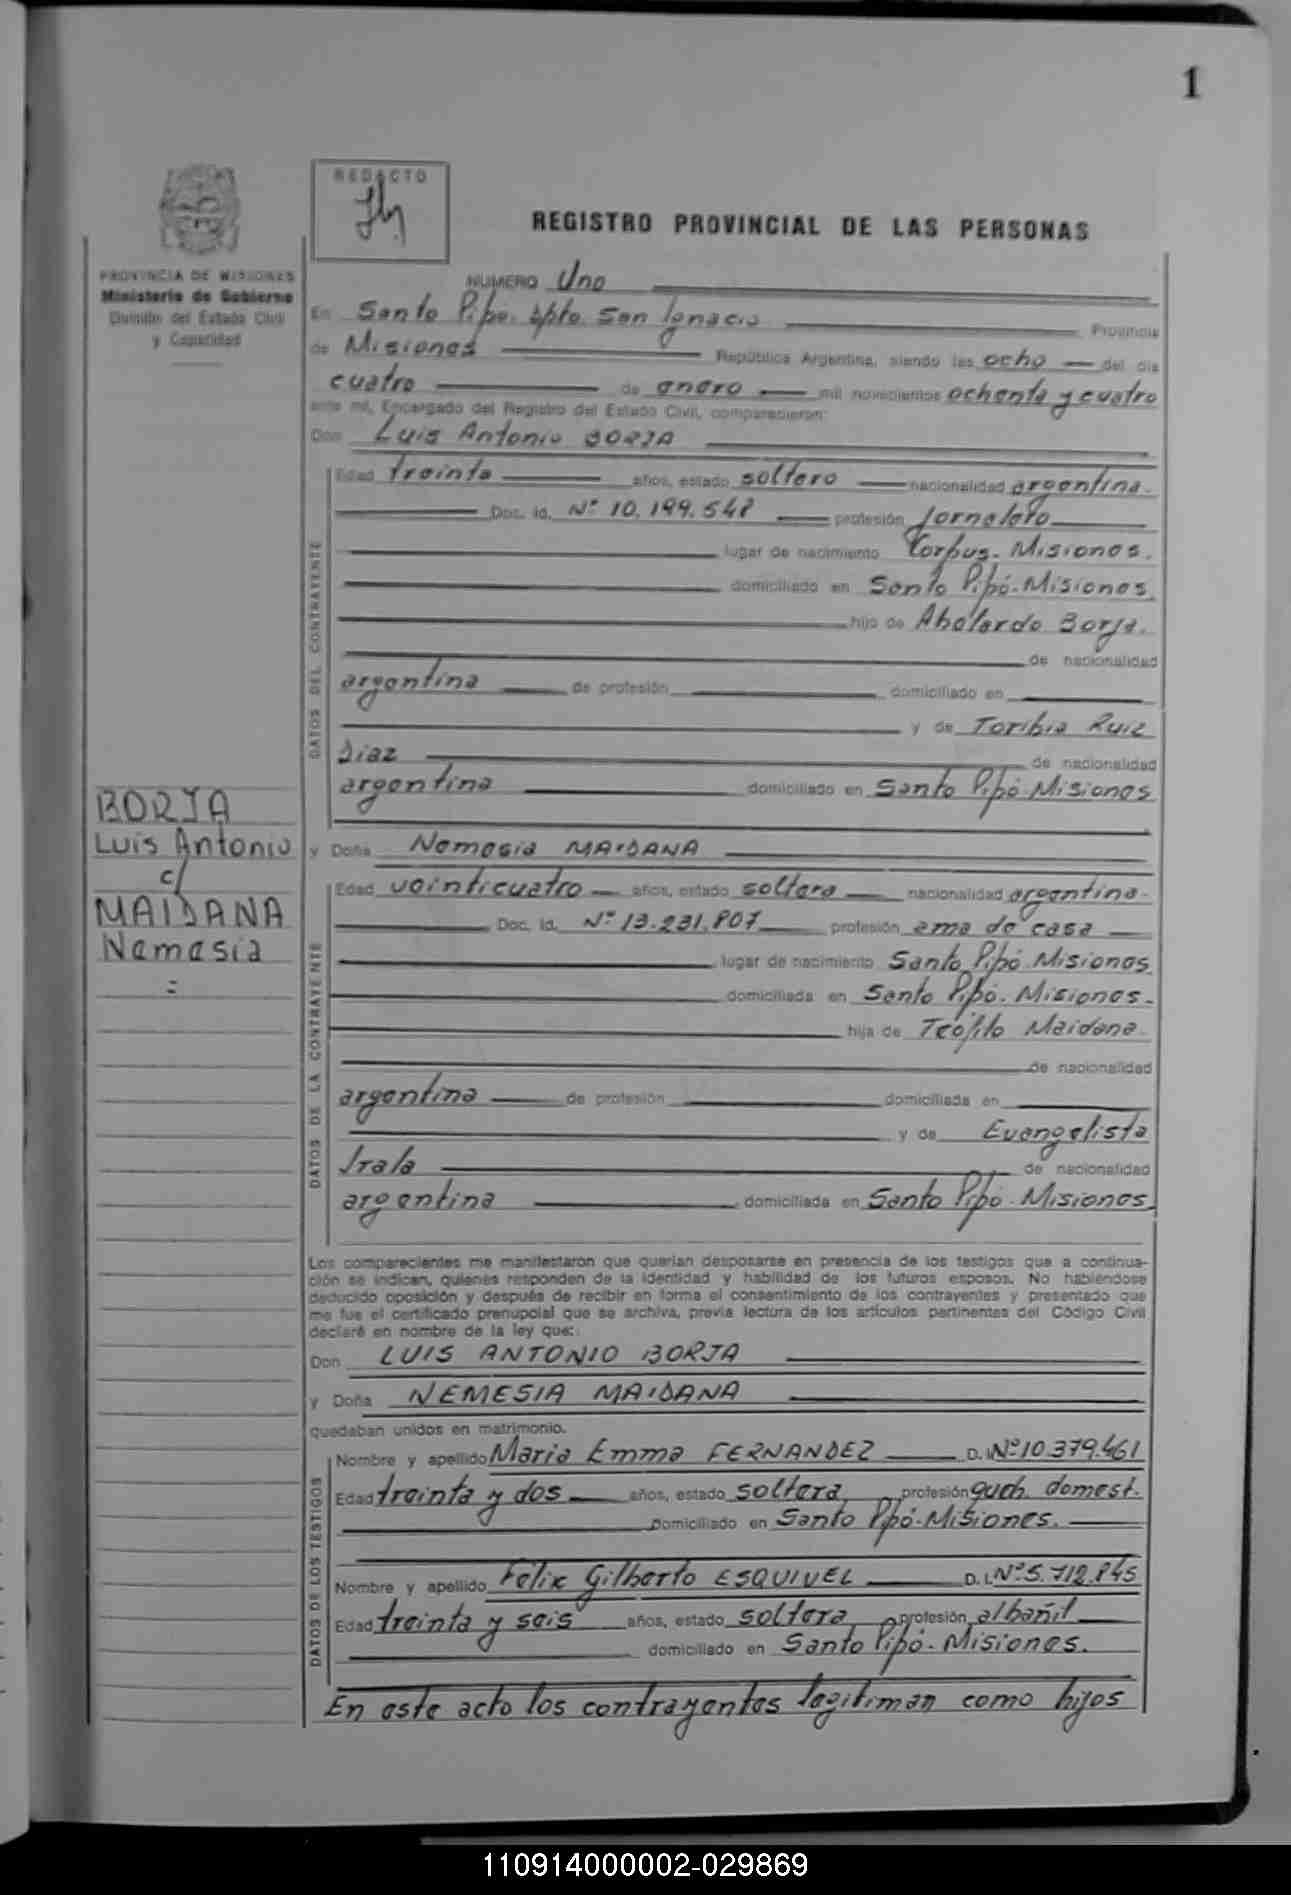 1
REDACTO
REGISTRO PROVINCIAL DE LAS PERSONAS
PROVINCIA DE MISIONES
Ministerio de Gobierno
División del Estado Civil
y Capacidad
NUMERO Uno
En Santo Pipó. Dpto. San Ignacio Provincia
de Misiones República Argentina, siendo las ocho del día
cuatro de enero mil novecientos ochenta y cuatro
ante mí, Encargado del Registro del Estado Civil, comparecieron:
Don Luis Antonio BORJA
DATOS DEL CONTRAYENTE
Edad treinta años, estado soltero nacionalidad argentina.
Doc. Id. Nº 10.199.548 profesión Jornalero
lugar de nacimiento Corpus. Misiones.
domiciliado en Santo Pipó-Misiones
hijo de Abelardo Borja.
de nacionalidad
argentina de profesión domiciliado en
y de Toribia Ruiz
Diaz de nacionalidad
argentina domiciliado en Santo Pipó-Misiones
BORJA
Luis Antonio
c/
MAIDANA
Nemesia
=
y Doña Nemesia MAIDANA
DATOS DE LA CONTRAYENTE
Edad veinticuatro años, estado soltera nacionalidad argentina-
Doc. Id. Nº 13.231.807 profesión ama de casa
lugar de nacimiento Santo Pipó Misiones
domiciliada en Santo Pipó. Misiones.
hija de Teófilo Maidana.
de nacionalidad
argentina de profesión domiciliada en
y de Evangelista
Irala de nacionalidad
argentina domiciliada en Santo Pipó-Misiones.
Los comparecientes me manifestaron que querían desposarse en presencia de los testigos que a continua-
ción se indican, quienes responden de la identidad y habilidad de los futuros esposos. No habiéndose
deducido oposición y después de recibir en forma el consentimiento de los contrayentes y presentado que
me fue el certificado prenupcial que se archiva, previa lectura de los artículos pertinentes del Código Civil
declaré en nombre de la ley que:
Don LUIS ANTONIO BORJA
y Doña NEMESIA MAIDANA
quedaban unidos en matrimonio.
DATOS DE LOS TESTIGOS
Nombre y apellido Maria Emma FERNANDEZ D.I. Nº 10.379.461
Edad treinta y dos años, estado soltera profesión queh. domest.
Domiciliado en Santo Pipó-Misiones.
Nombre y apellido Félix Gilberto ESQUIVEL D.I. Nº 5.712.845
Edad treinta y seis años, estado soltera profesión albañil
domiciliado en Santo Pipó-Misiones.
En este acto los contrayentes legitiman como hijos
110914000002-029869